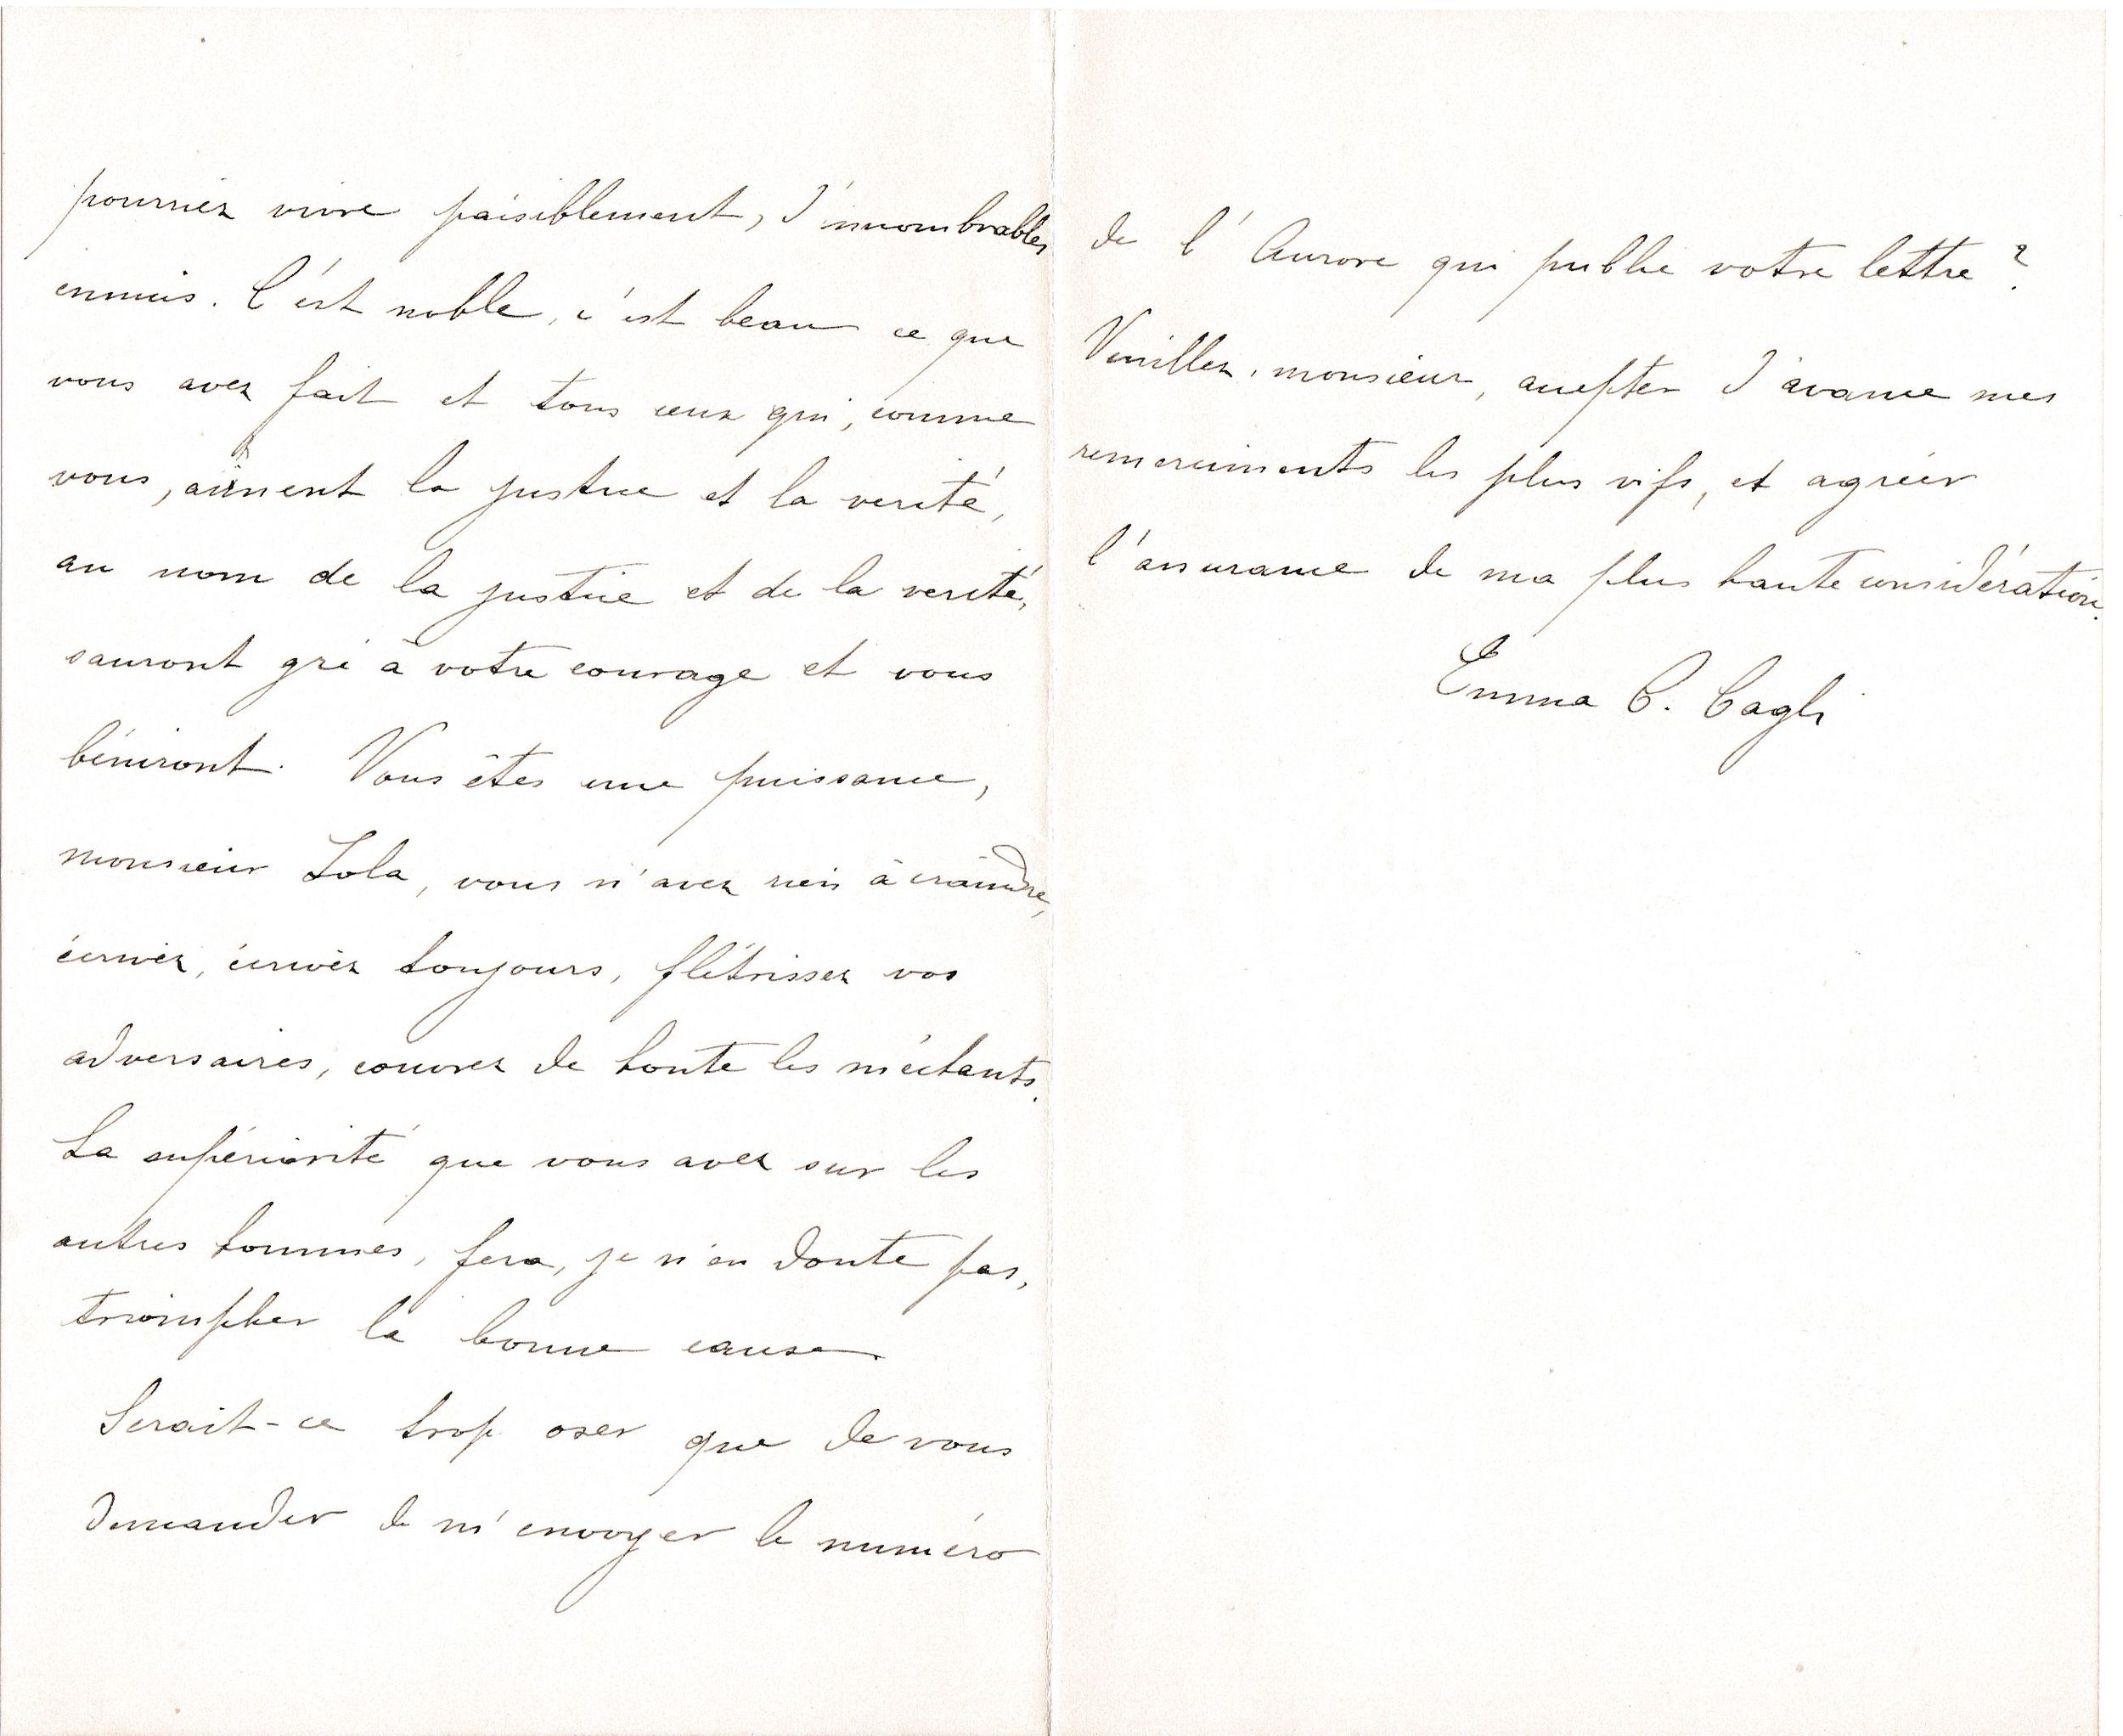 pourriez vivre paisiblement, d'innombrables
ennuis. C'est noble, c'est beau ce que
vous avez fait et tous ceux qui, comme
vous, aiment la justice et la verité,
au nom de la justice et de la verité,
sauront gré à votre courage et vous
béniront. Vous êtes une puissance,
monsieur Zola, vous n'avez rien à craindre,
écrivez, écrivez toujours, flétrissez vos
adversaires, couvrez de honte les méchants.
La supériorité que vous avez sur les
autres hommes, fera, je n'en doute pas,
triompher la bonne cause.
Serait-ce trop oser que de vous
demander de m'envoyer le numéro
de l'Aurore qui publie votre lettre?
Veuillez, monsieur, accepter d'avance mes
remerciments les plus vifs, et agréer
l'assurance de ma plus haute considération.
Emma C. Cagli